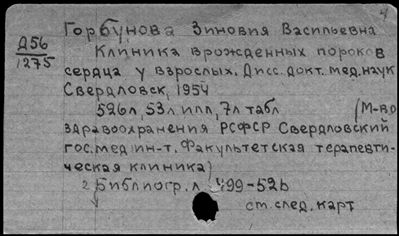 4
Горбунова Зиновия Васильевна
Д56
1275
Клиника врожденных пороков
сердца у взрослых. Дисс. докт. мед. наук
Свердловск, 1954
526л, 53л илл, 7л табл
(М-во
здравоохранения РСФСР Свердловский
гос. мед ин-т. Факультетская терапевти-
ческая клиника)
Библиогр. л 499-526
см. след. карт